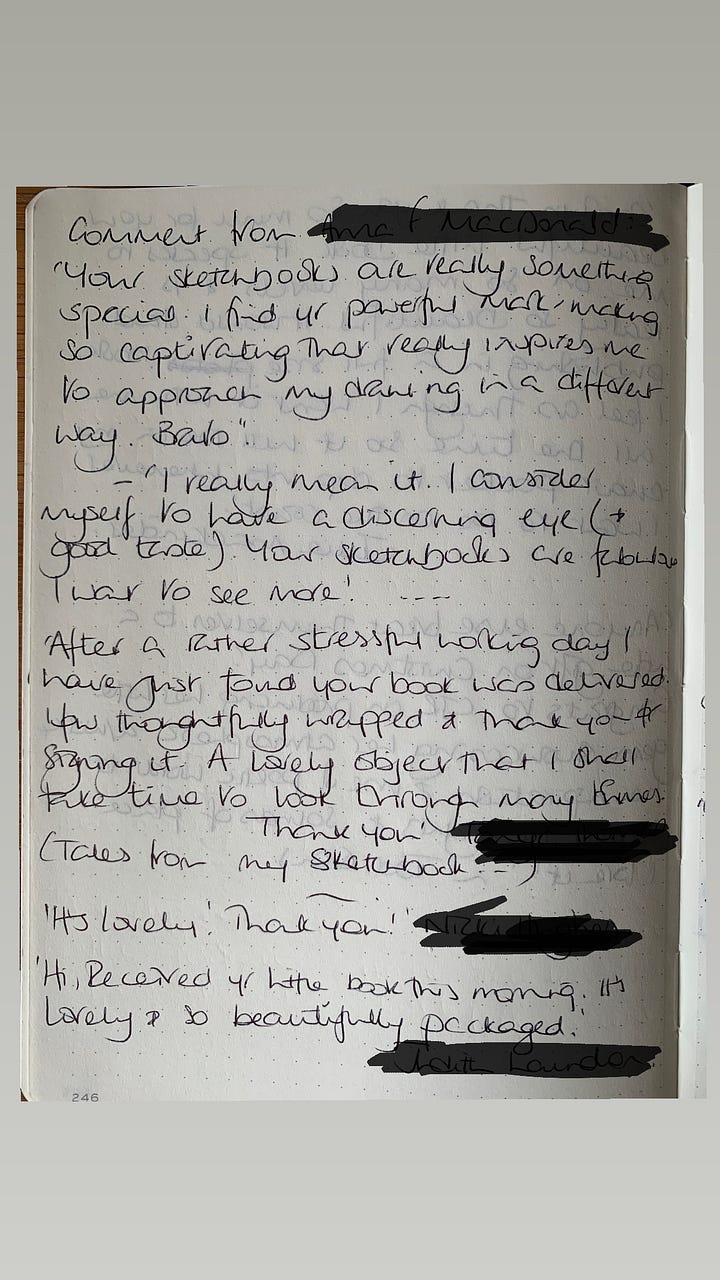 Comment from
"Your sketchbooks are really something
special. I find yr powerful mark-making
so captivating that really inspires me
to approach my drawing in a different
way.
– "I really mean it. I consider
myself to have a discerning eye (+
good taste). Your sketchbooks are fabulous
I want to see more! ----
'After a rather stressful working day I
have just found your book was delivered.
How thoughtfully wrapped & thank you for
signing it. A lovely object that I shall
take time to look through many times.
Thank you'
(Tales from my Sketchbook ---)
'It's lovely! Thank you!'
'Hi, Received yr little book this morning. It's
lovely & so beautifully packaged.'
246